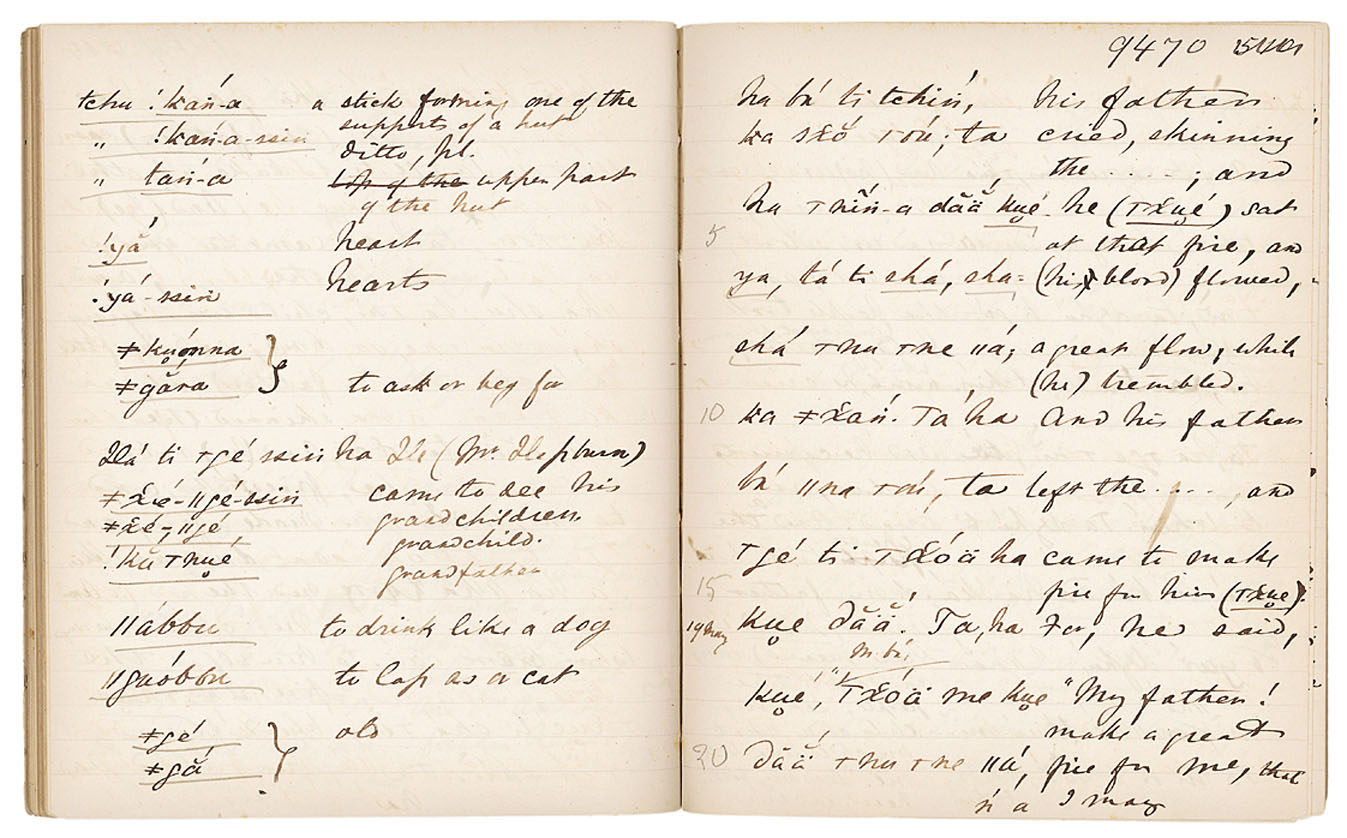 tchu !kań-a a stick forming one of the
supports of a hut
„ !kań-a-ssin ditto, pl.
„ tań-a top of the upper part
of the hut
!yắ heart
!yá-ssin hearts
ǂkṷónna
ǂgǎra to ask or beg for
Há ti ꞇgé ssin ha He (Mr. Hepburn)
ǂx̌é-ǁgé-ssin came to see his
grandchildren
ǂx̌é-ǁgé grandchild.
!kū ꞇnu̬é grandfather
ǁábbu to drink like a dog
ǁgúóbbu to lap as a cat
ǂgé old
ǂgǎ́
9470
ha bá ti tchiń, his father
ka sx̌ắ ꞇoú; ta cried, skinning
the ....; and
ha ꞇnin̄́-a dǎä́ ku̬é he (ꞇx̌u̬é) sat
5 at that fire, and
ya, tá ti shá, sha= (his blood) flowed,
shá ꞇnu ꞇne ǁá; a great flow, while
(he) trembled.
10 ka ǂx̌ań. Tá ha And his father
bá ǁna ꞇoú, ta left the ...., and
ꞇgé ti ꞇx̌óä ha came to make
15 fire for him (ꞇx̌u̬e).
19 May ku̬e dǎǎ́. Ta, ha For, he said,
m bá,
ku̬é, "ꞇx̌óä me ku̬e "My father!
make a great
20 dǎǎ́ ꞇnu ꞇne ǁá, fire for me, that
ń a I may